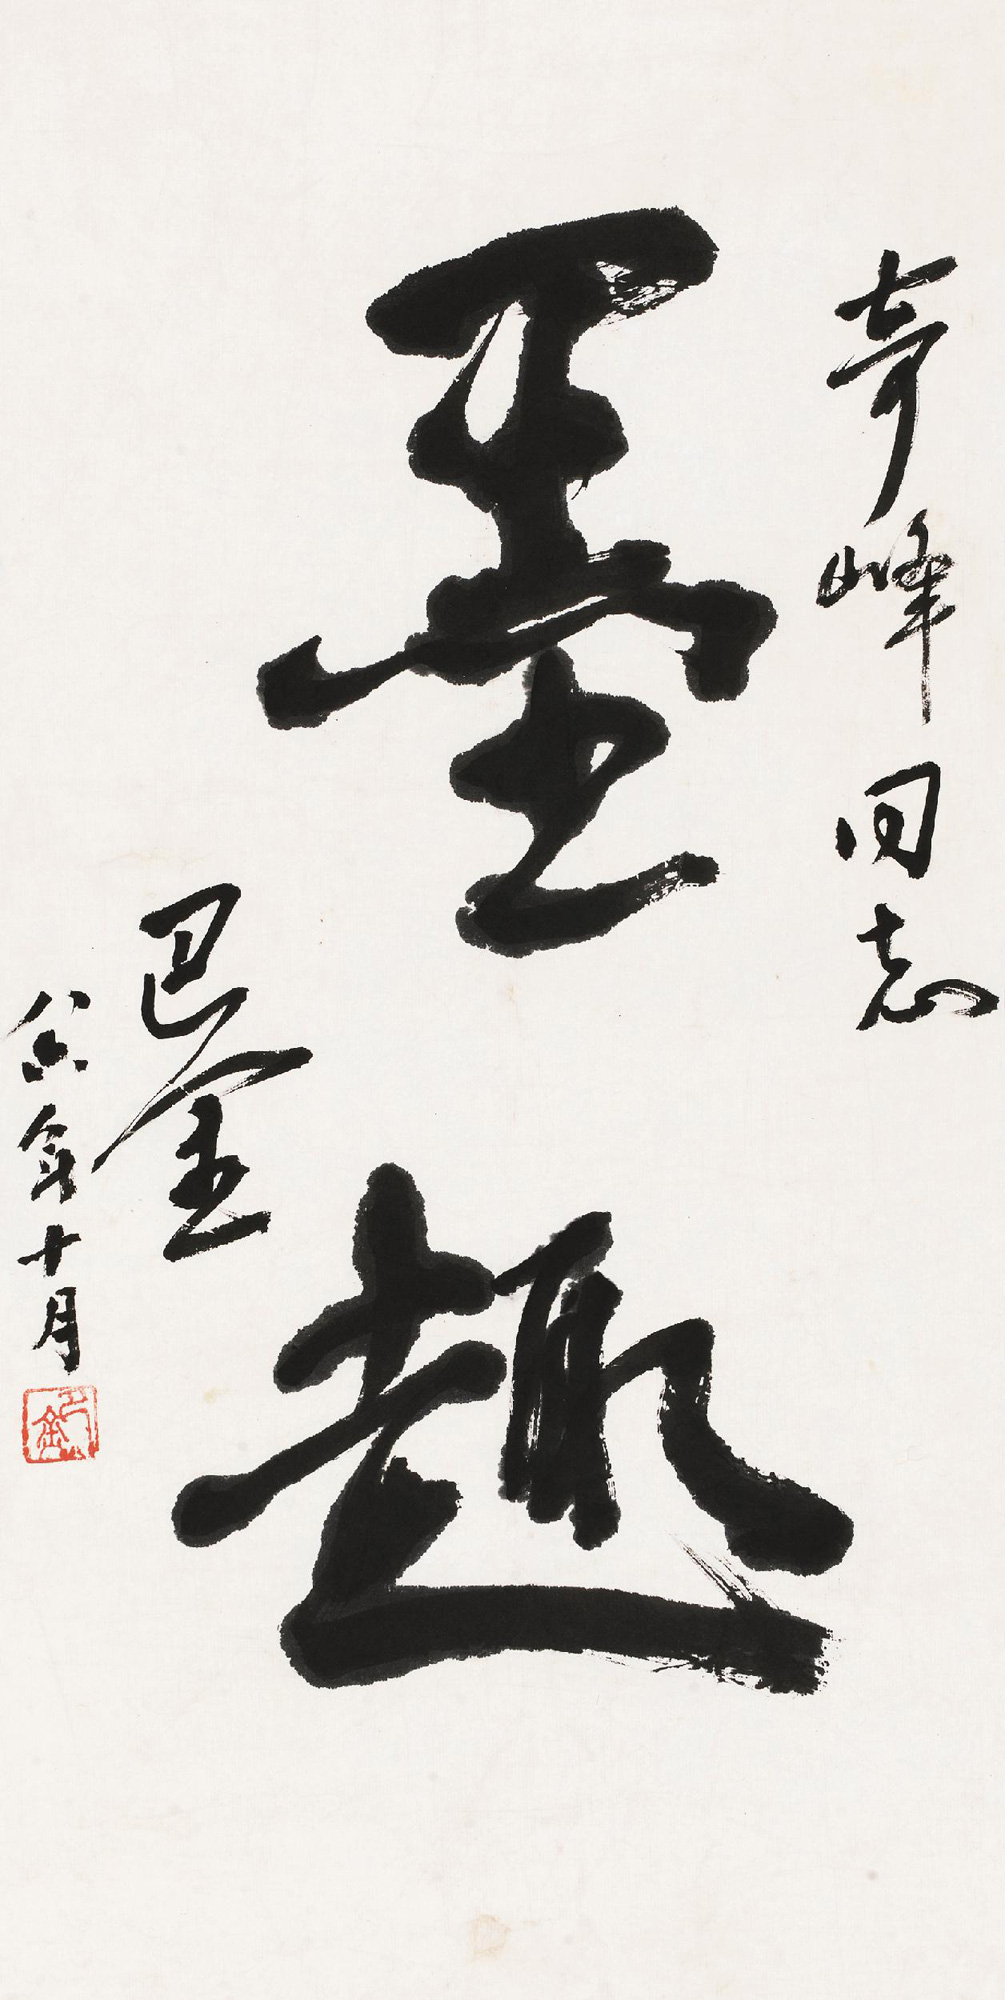 奇峰同志
墨趣
巴金
八六年十月
巴金